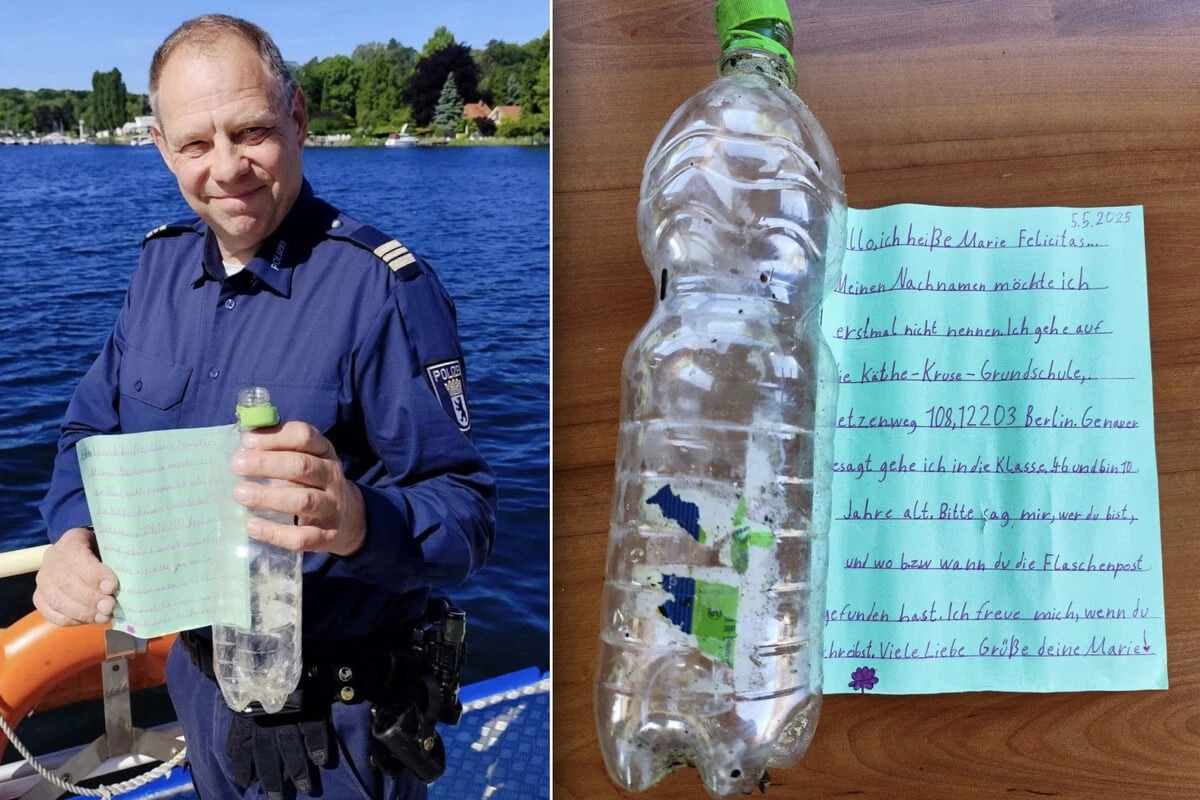 POLIZEI
POLIZEI
5.5.2025
llo, ich heiße Marie Felicitas...
Meinen Nachnamen möchte ich
erstmal nicht nennen. Ich gehe auf
ie Käthe-Kruse-Grundschule,
etzenweg 108, 12203 Berlin. Genauer
esagt gehe ich in die Klasse 4b und bin 10
Jahre alt. Bitte sag mir, wer du bist,
und wo bzw wann du die Flaschenpost
gefunden hast. Ich freue mich, wenn du
chreibst. Viele Liebe Grüße deine Marie!